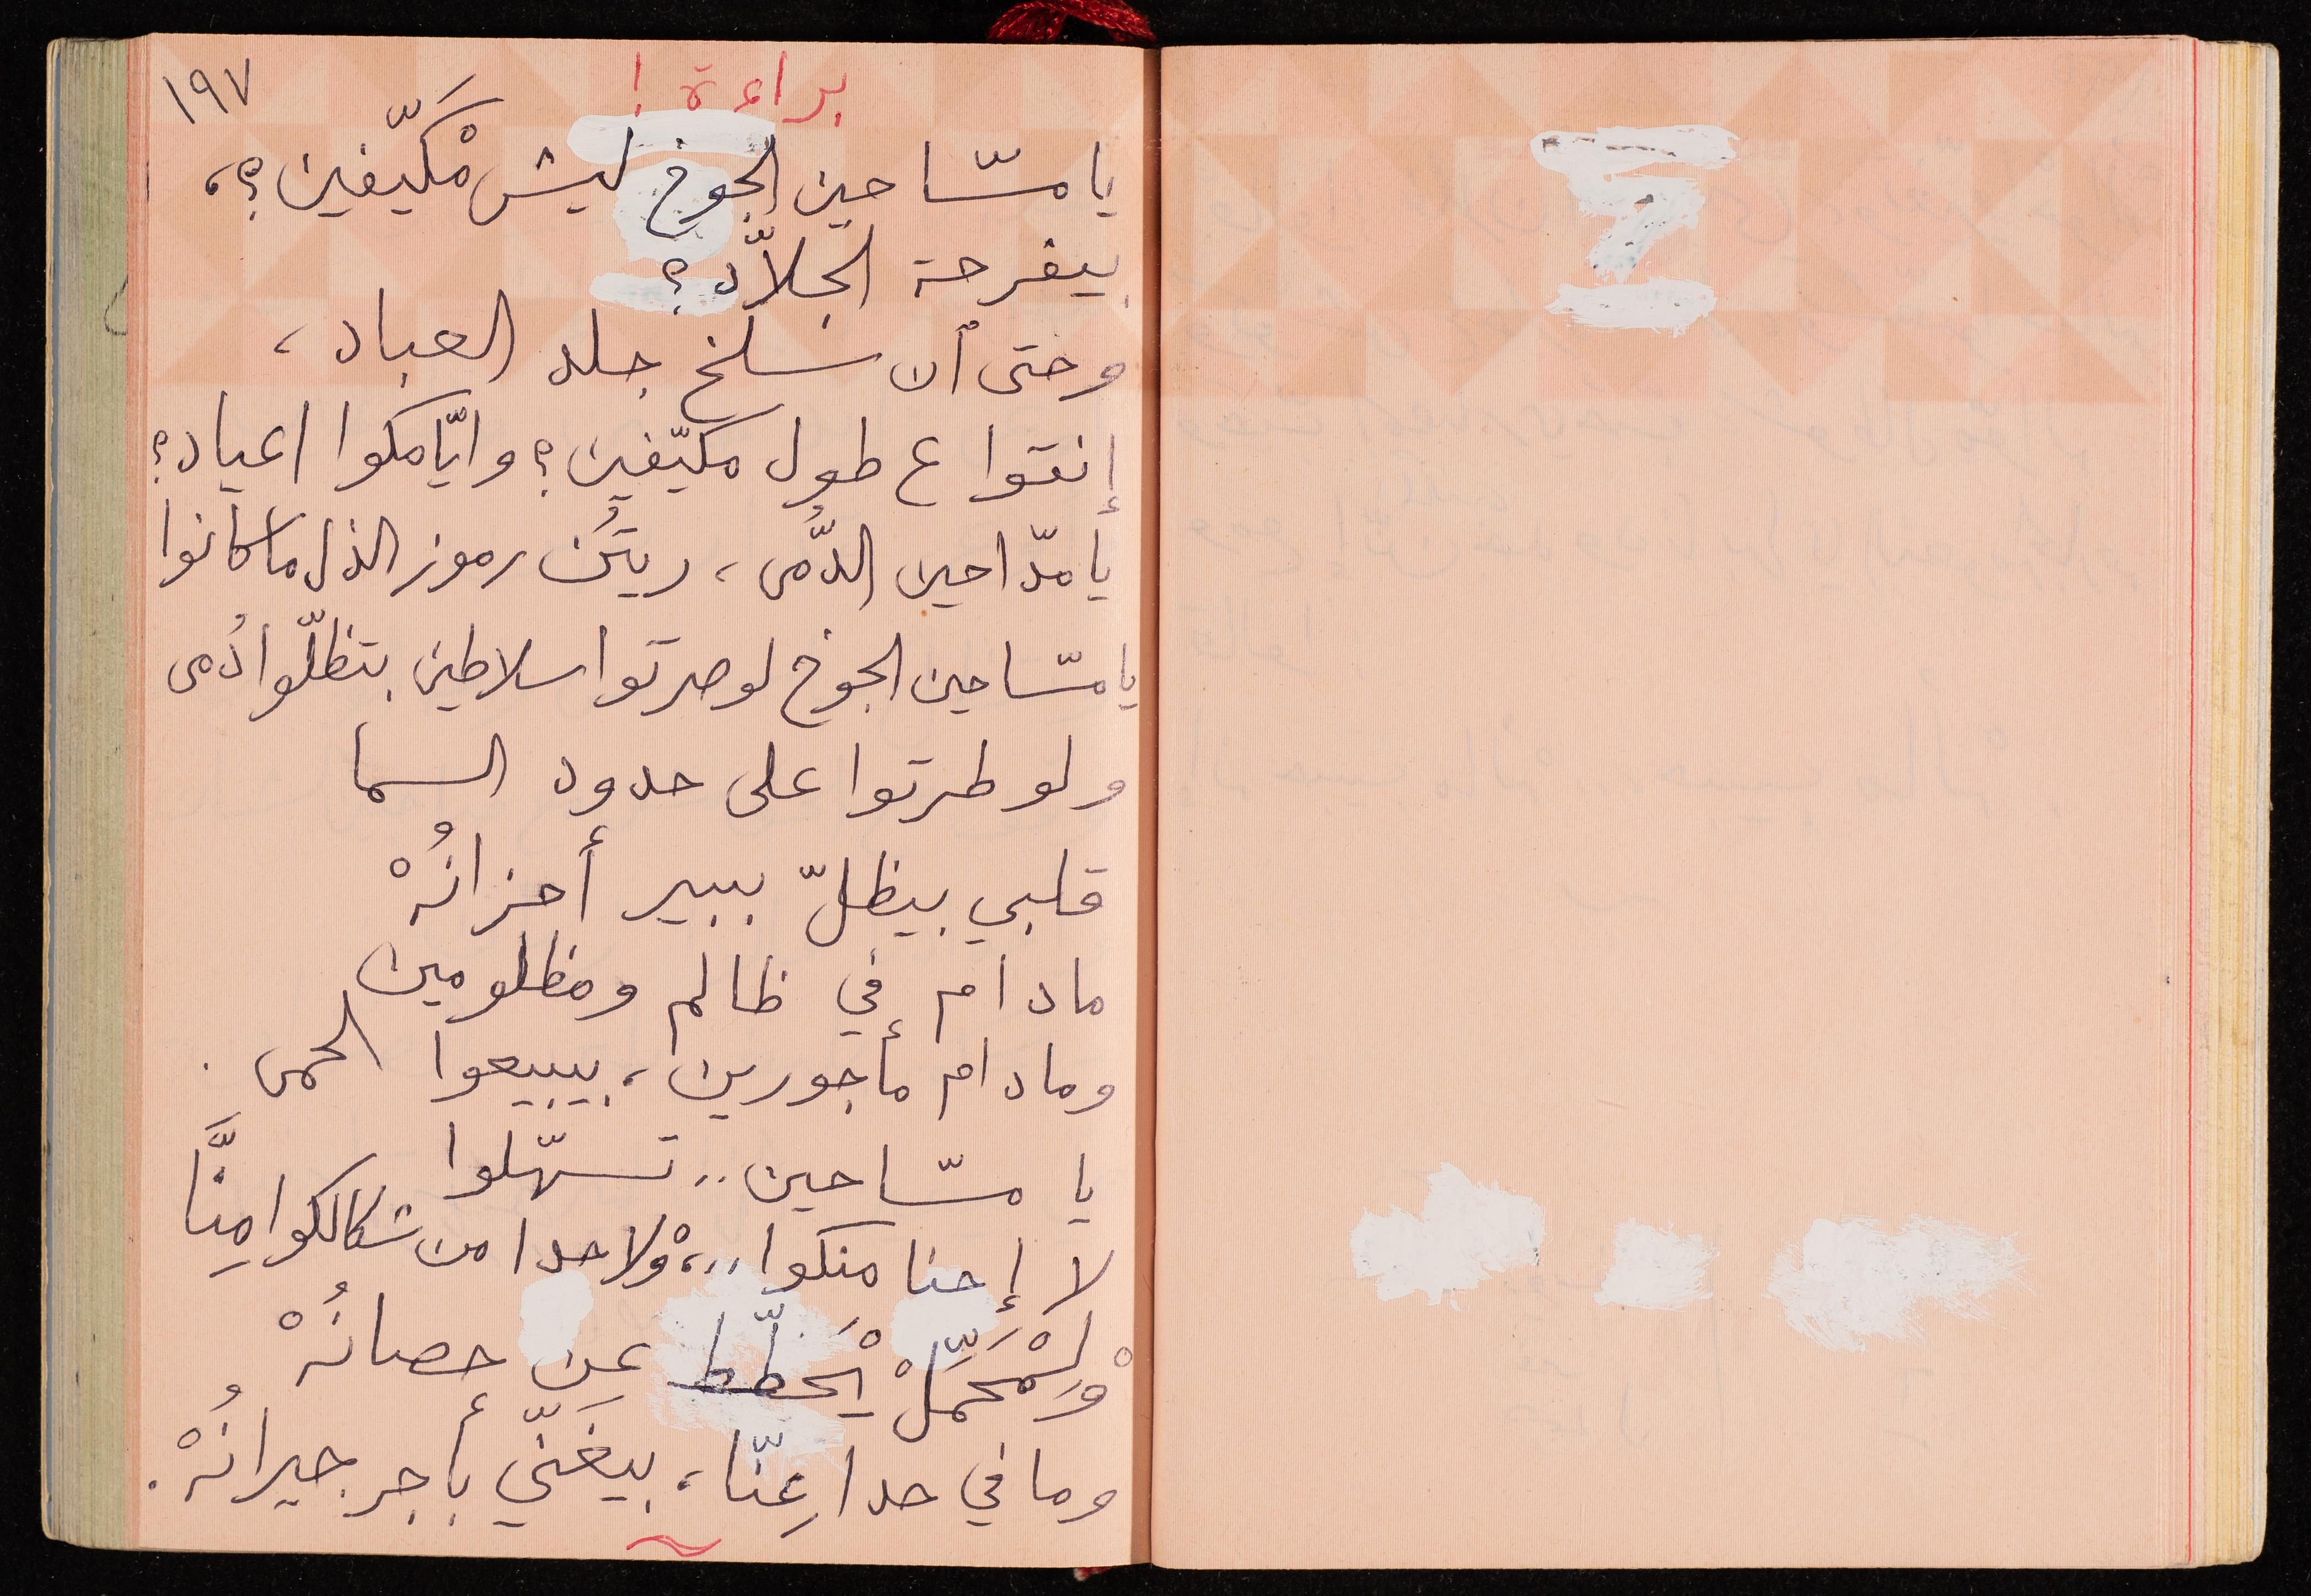 ١٩٧
براءة !
يا مسّاحين الجوخ ليش مْكَيّفين؟،
بيفرحة الجلاّد؟
وحتى أن سلخ جلد العباد،
إنتوا ع طول مكيّفين؟ وايّامكوا اعياد؟
يا مدّاحين الدُّمى، ريتُن رموز الذل ما كانوا
يا مسّاحين الجوخ لو صرتوا سلاطين بتظلّوا دُمى
ولو طرتوا على حدود السما
قلبي بيظلّ ببير أحزانُهْ
مادام في ظالم ومظلومين
ومادام مأجورين، بيبيعوا الحمى .
يا مسّاحين .. تسهّلوا
لا إحنا منكوا ..، وْلا حدا من شكالكوا مِنَّا
وْلِمْحَمِّلْ يْحَطّط عن حصانُهْ
وما في حدا عِنّا، بيغنّي بأجر جيرانُهْ .